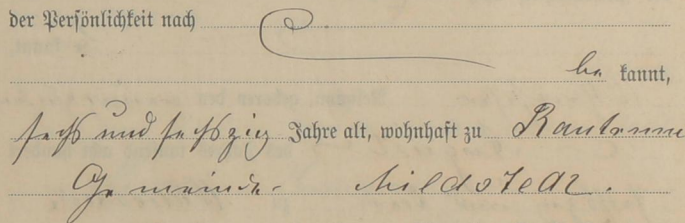 der Persönlichkeit nach
be kannt,
sechs und sechszig Jahre alt, wohnhaft zu Rantrum
Gemeinde Mildstedt.